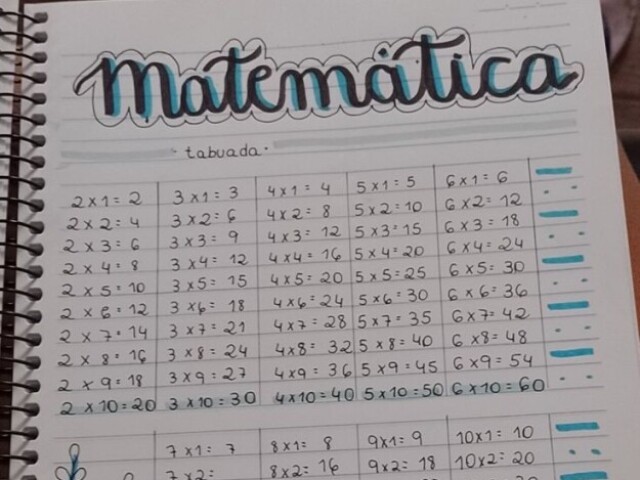 Matemática
· tabuada ·
2 x 1 = 2 3 x 1 = 3 4 x 1 = 4 5 x 1 = 5 6 x 1 = 6
2 x 2 = 4 3 x 2 = 6 4 x 2 = 8 5 x 2 = 10 6 x 2 = 12
2 x 3 = 6 3 x 3 = 9 4 x 3 = 12 5 x 3 = 15 6 x 3 = 18
2 x 4 = 8 3 x 4 = 12 4 x 4 = 16 5 x 4 = 20 6 x 4 = 24
2 x 5 = 10 3 x 5 = 15 4 x 5 = 20 5 x 5 = 25 6 x 5 = 30
2 x 6 = 12 3 x 6 = 18 4 x 6 = 24 5 x 6 = 30 6 x 6 = 36
2 x 7 = 14 3 x 7 = 21 4 x 7 = 28 5 x 7 = 35 6 x 7 = 42
2 x 8 = 16 3 x 8 = 24 4 x 8 = 32 5 x 8 = 40 6 x 8 = 48
2 x 9 = 18 3 x 9 = 27 4 x 9 = 36 5 x 9 = 45 6 x 9 = 54
2 x 10 = 20 3 x 10 = 30 4 x 10 = 40 5 x 10 = 50 6 x 10 = 60
7 x 1 = 7 8 x 1 = 8 9 x 1 = 9 10 x 1 = 10
7 x 2 = 8 x 2 = 16 9 x 2 = 18 10 x 2 = 20